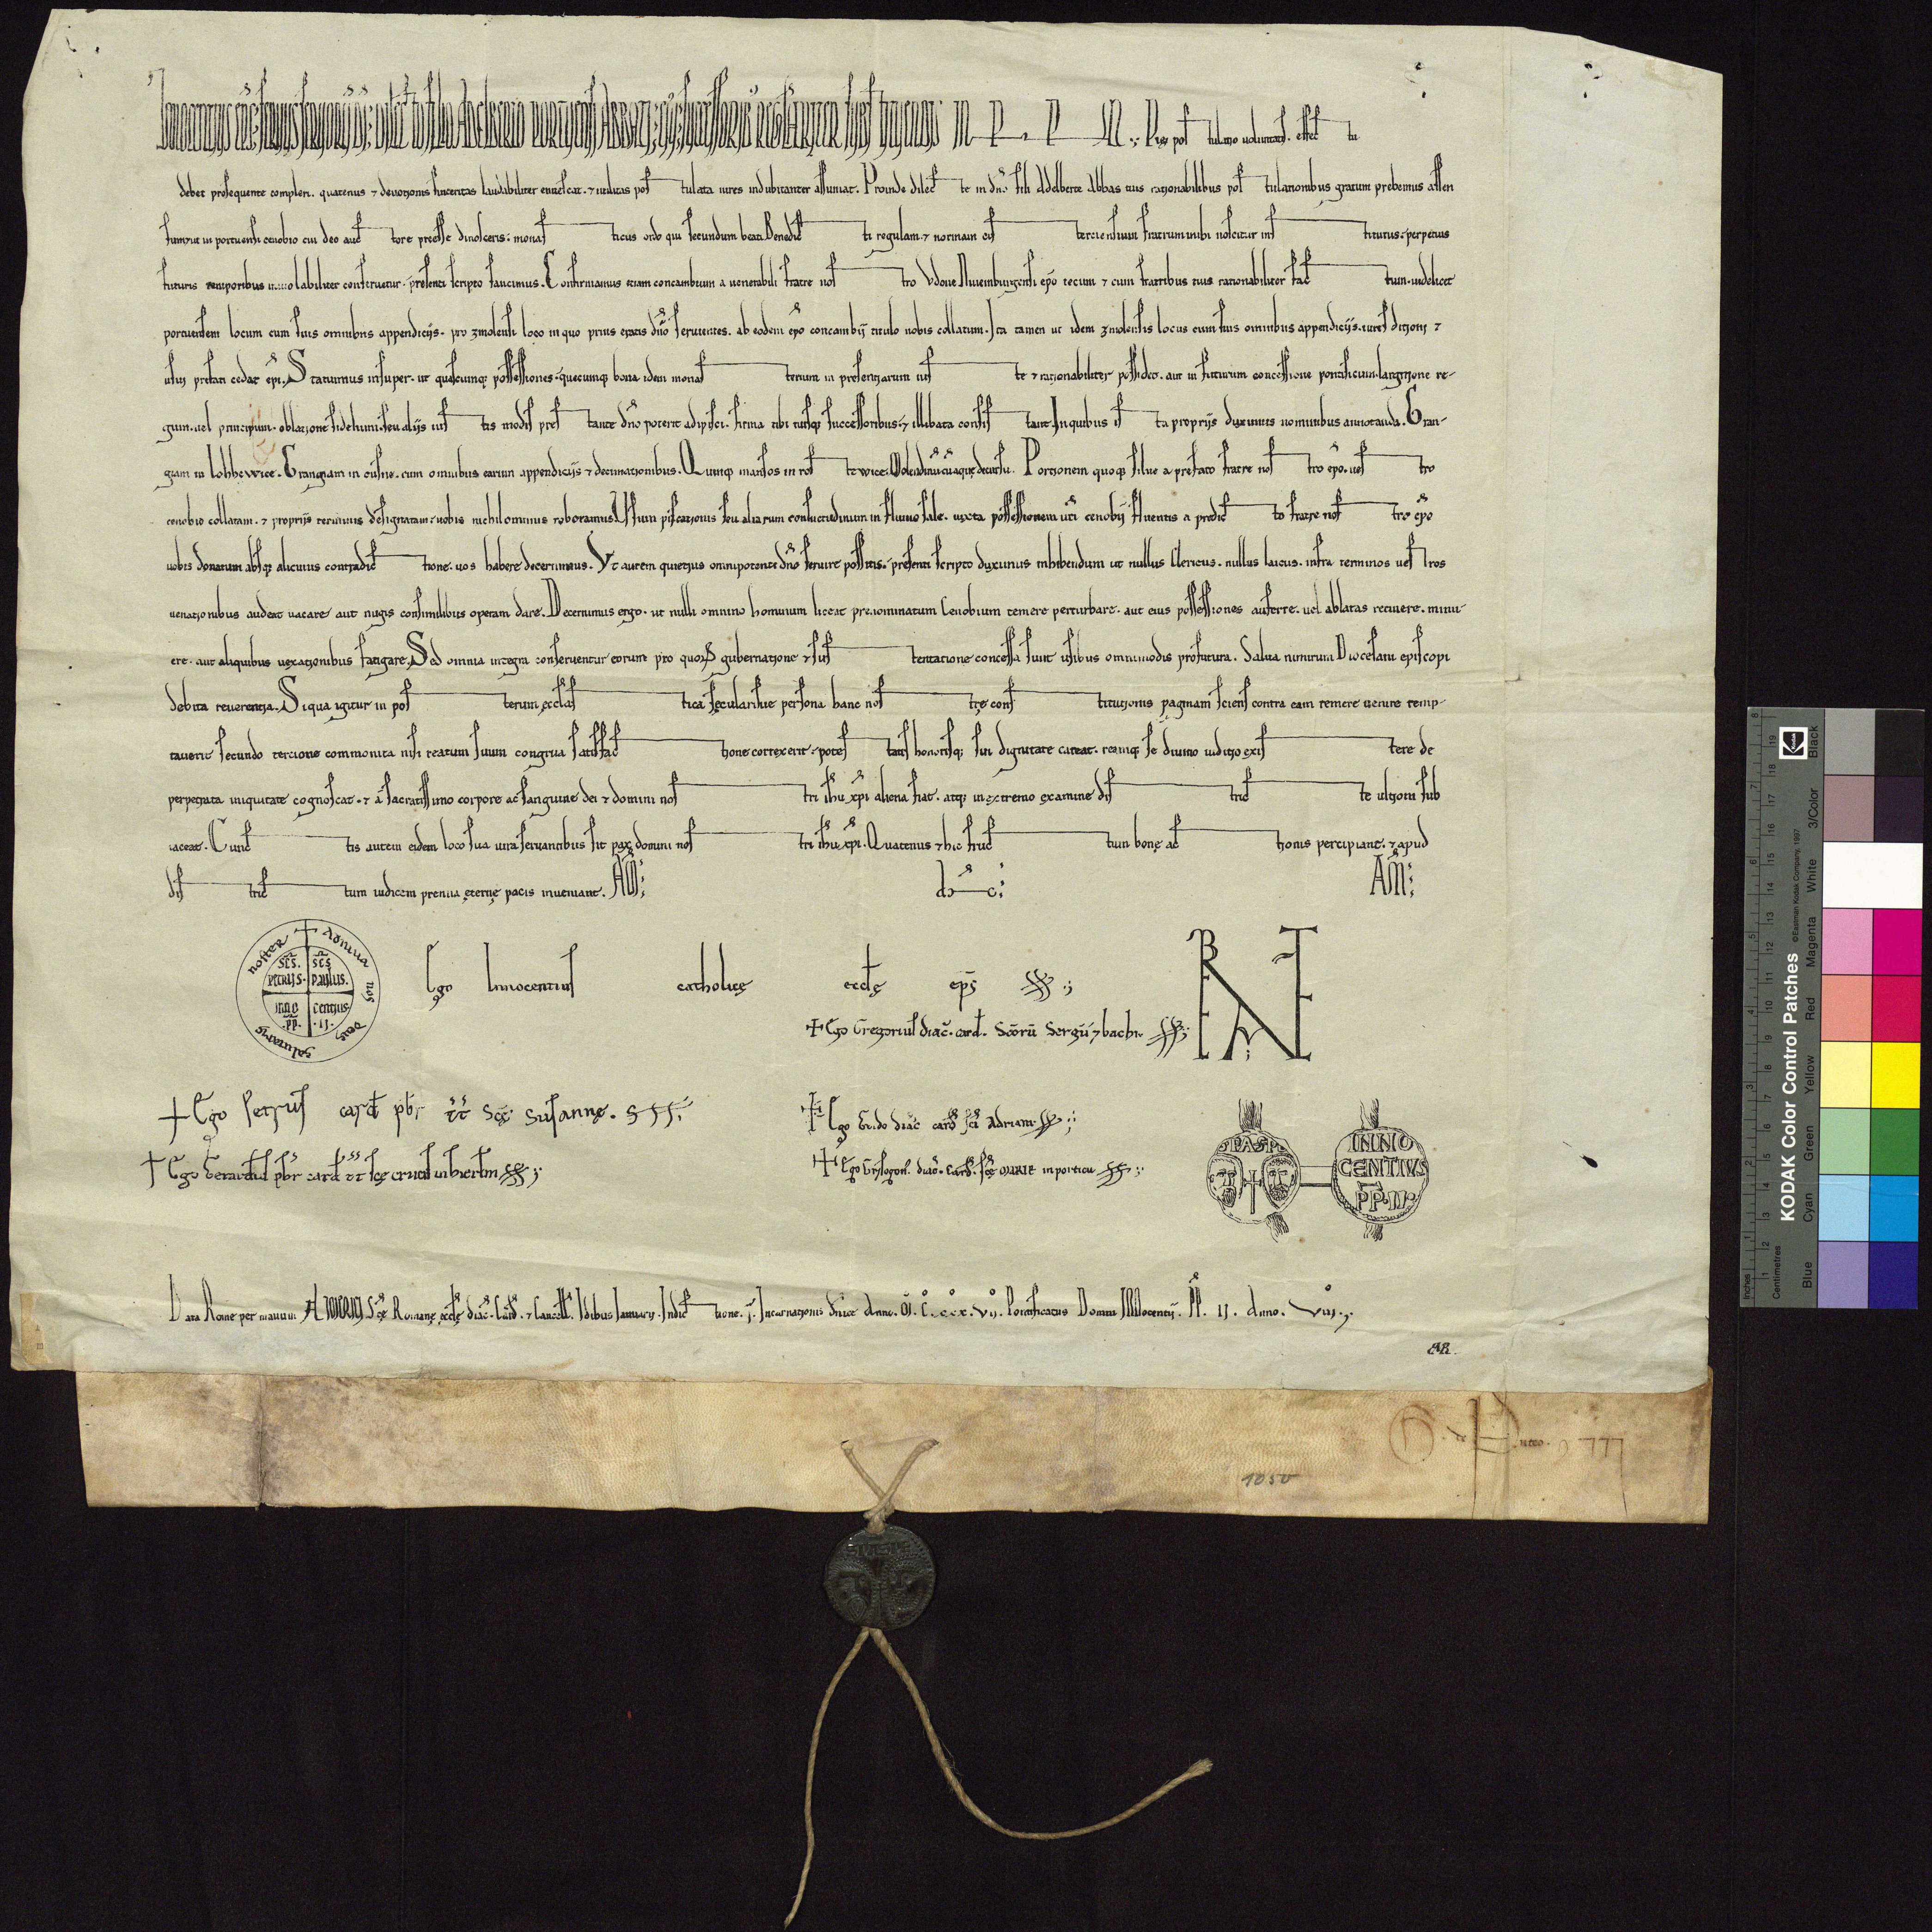 Innocentius eps seruus seruorū dī; dilecto filio Adelberto Portuensi Abbati; eiusq; successorib; regularit substituendis IN PPM. Pie post tulatio uoluntatis. effec tu
debet prosequente compleri. quatenus & deuotionis sinceritas laudabiliter enitescat. & utilitas pos tulata uires indubitanter assumat. Proinde dilec te in dno fili Adelberte Abbas tuis rationabilibus pos tulationibus gratum prebemus assen
sum. ut in portuensi cenobio cui deo auc tore preesse dinosceris; monas ticus ordo qui secundum beati Benedic ti regulam. & normam cis terciensium fratrum inibi noscitur ins titutus; perpetuis
futuris temporibus inuiolabiliter conseruetur. presenti scripto sancimus. Confirmamus etiam concambium a uenerabili fratre nos tro Vdone Nuemburgensi epo tecum & cum fratribus tuis rationabiliter fac tum. uidelicet
portuensem locum cum suis omnibus appendicijs. pro zmolensi loco in quo prius eratis dno seruientes. ab eodem epo concambij titulo uobis collatum. Ita tamen ut idem zmolensis locus cum suis omnibus appendicijs. iuris ditioni &
usui prefati cedat epi. Statuimus insuper. ut quascumq; possessiones. quecumq; bona idem monas terium in presentiarum ius te & rationabiliter possidet. aut in futurum concessione pontificum. largitione re-
gum. uel principum. oblatione fidelium. seu alijs ius tis modis pres tante dno poterit adipisci. firma tibi tuisq; successoribus. & illibata consis tant. In quibus is ta proprijs duximus nominibus annotanda. Gran-
giam in lobbewice. Grangiam in cusne. cum omnibus earum appendicijs & decimationibus. Quinq; mansos in ros tewice. Molendinū cū aque decursu. Portionem quoq; silue a prefato fratre nos tro epo. ues tro
cenobio collatam. & proprijs terminis designatam. uobis nichilominus roboramus. Usum piscationis seu aliarum consuetudinum in fluuio sale. iuxta possessionem uri cenobij fluentis a predic to fratre nos tro epo
uobis donatum absq; alicuius contradic tione. uos habere decernimus. Vt autem quietius omnipotenti dno seruire possitis. presenti scripto duximus inhibendum ut nullus Clericus. nullus laicus. infra terminos ues tros
uenationibus audeat uacare aut nugis consimilibus operam dare. Decernimus ergo. ut nulli omnino hominum liceat prenominatum Cenobium temere perturbare. aut eius possessiones auferre. uel ablatas retinere. minu-
ere. aut aliquibus uexationibus fatigare. Sed omnia integra conseruentur eorum pro quorū gubernatione & sus tentatione concessa sunt usibus omnimodis profutura. Salua nimirum Diocesani episcopi
debita reuerentia. Siqua igitur in pos terum ecclesias tica secularisue persona hanc nos tre cons titutionis paginam sciens contra eam temere uenire temp-
tauerit secundo tercioue commonita nisi reatum suum congrua satisfac tione correxerit. potes tatis honorisq; sui dignitate careat. reamq; se diuino iuditio exis tere de
perpetrata iniquitate cognoscat. & a sacratissimo corpore ac sanguine dei & domini nos tri ihu xpi aliena fiat. atq; in extremo examine dis tric te ultioni sub
iaceat. Cunc tis autem eidem loco sua iura seruantibus sit pax domini nos tri ihu xpi. Quatenus & hic fruc tum bone ac tionis percipiant. & apud
dis tric tum iudicem premia eterne pacis inueniant. AM; AM;
Adiuua nos deus salutaris noster
SCS. PETRUS. SCS PAULUS. INNO CENTIUS .PP. .II.
Ego Innocentius catholice eccle eps
+ Ego Gregorius diac. card. Scorū Sergii & bachi.
+ Ego Petrus card pbr tt Sce Susanne.
+ Ego Guido diac card sci Adriani
+ Ego Gerardus pbr card tt sce crucis in hierlm
+ Ego Grisogonꝰ diac. card. sce MARIE in porticu
SPASPE
INNO
CENTIUS
PP. II.
Data Rome per manum AIMERICI Sce Romane eccle diac. Card. & Cancell. Idibus Ianuarij. Indic tione. I. Incarnationis dnice Anno. M. C. xxx. VII. Pontificatus Domni INNocentij. PP. II. Anno. VIII.
1050